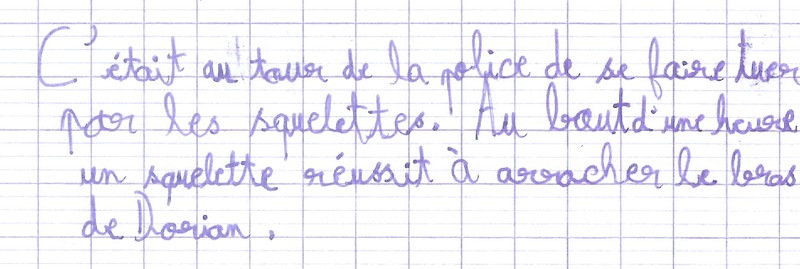 C'était au tour de la police de se faire tuer
par les squelettes. Au bout d'une heure
un squelette réussit à arracher le bras
de Dorian.